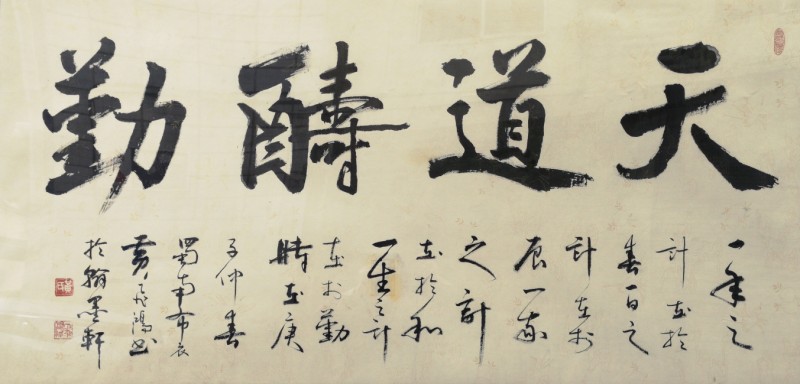 天道醻勤
一年之
計在於
春一日之
計在於
辰一家
之計
在於和
一生之計
在於勤
時在庚
子仲春
蜀南布衣
黄飛鴻書
於翰墨軒